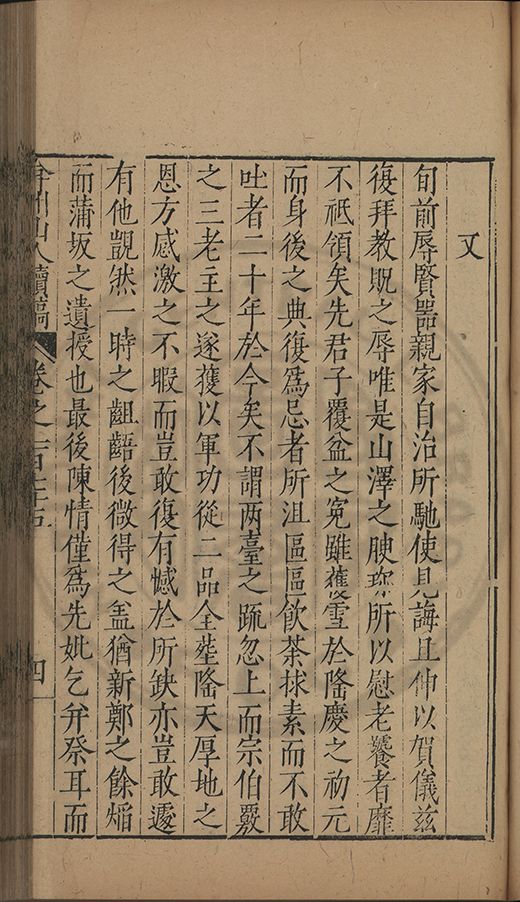 又
旬前辱賢器親家自治所馳使見誨且伸以賀儀兹
復拜教貺之辱唯是山澤之腴珎所以慰老饕者靡
不祗領矣先君子覆盆之寃雖獲雪於隆慶之初元
而身後之典復為忌者所沮區區飲茶捄素而不敢
吐者二十年於今矣不謂兩臺之䟽忽上而宗伯覈
之三老主之遂獲以軍功從二品全塟隆天厚地之
恩方感激之不暇而豈敢復有憾於所缺亦豈敢遽
有他覬然一時之齟齬後微得之盖猶新鄭之餘焰
而蒲坂之遺授也最後陳情僅為先妣乞并祭耳而
弇州山人續稿 卷之一百七十五 四